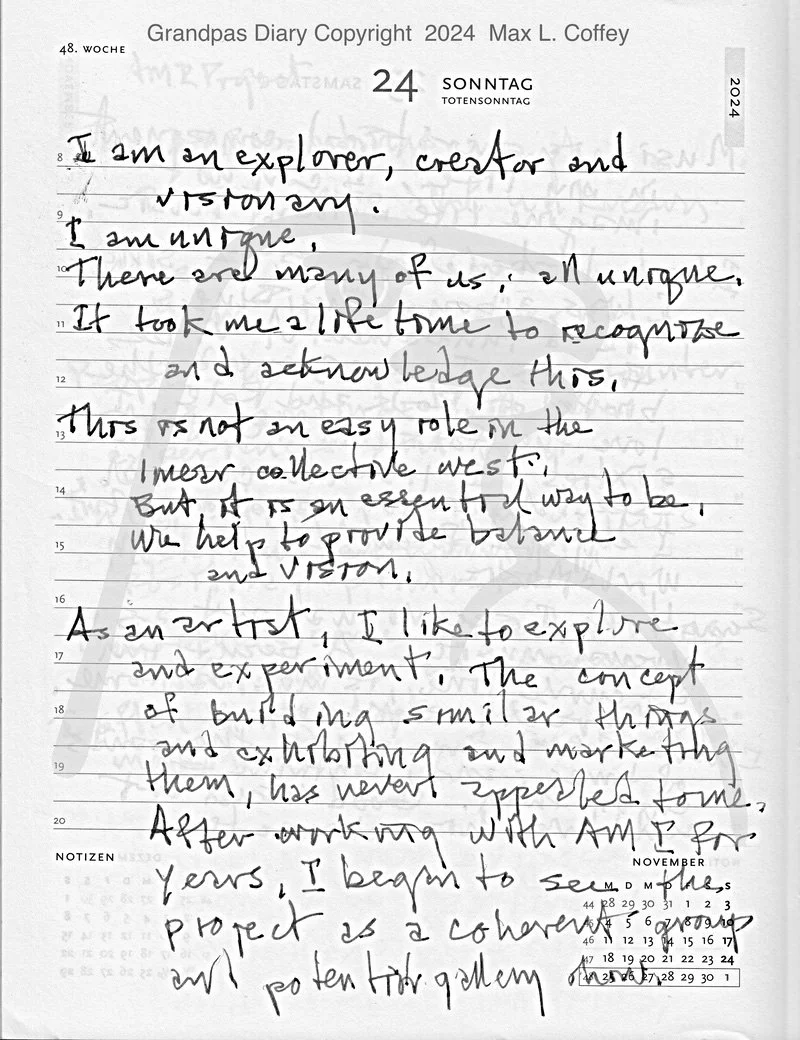 Grandpas Diary Copyright 2024 Max L. Coffey
48. WOCHE
24 SONNTAG
TOTENSONNTAG
2024
8 I am an explorer, creator and
visionary.
9
I am unique.
10 There are many of us, all unique.
11 It took me a life time to recognize
12 and acknowledge this.
13 This is not an easy role in the
linear collective west.
14 But it is an essential way to be.
We help to provide balance
15
and vision.
16
As an artist, I like to explore
17 and experiment. The concept
18 of building similar things
and exhibiting and marketing
19
them, has never appealed to me.
20 After working with AMI for
NOTIZEN
NOVEMBER
years, I begin to see the
project as a coherent group
and potential gallery show.
M D M D F S S
44 28 29 30 31 1 2 3
4 5 6 7 8 9 10
46 11 12 13 14 15 16 17
47 18 19 20 21 22 23 24
48 25 26 27 28 29 30 1